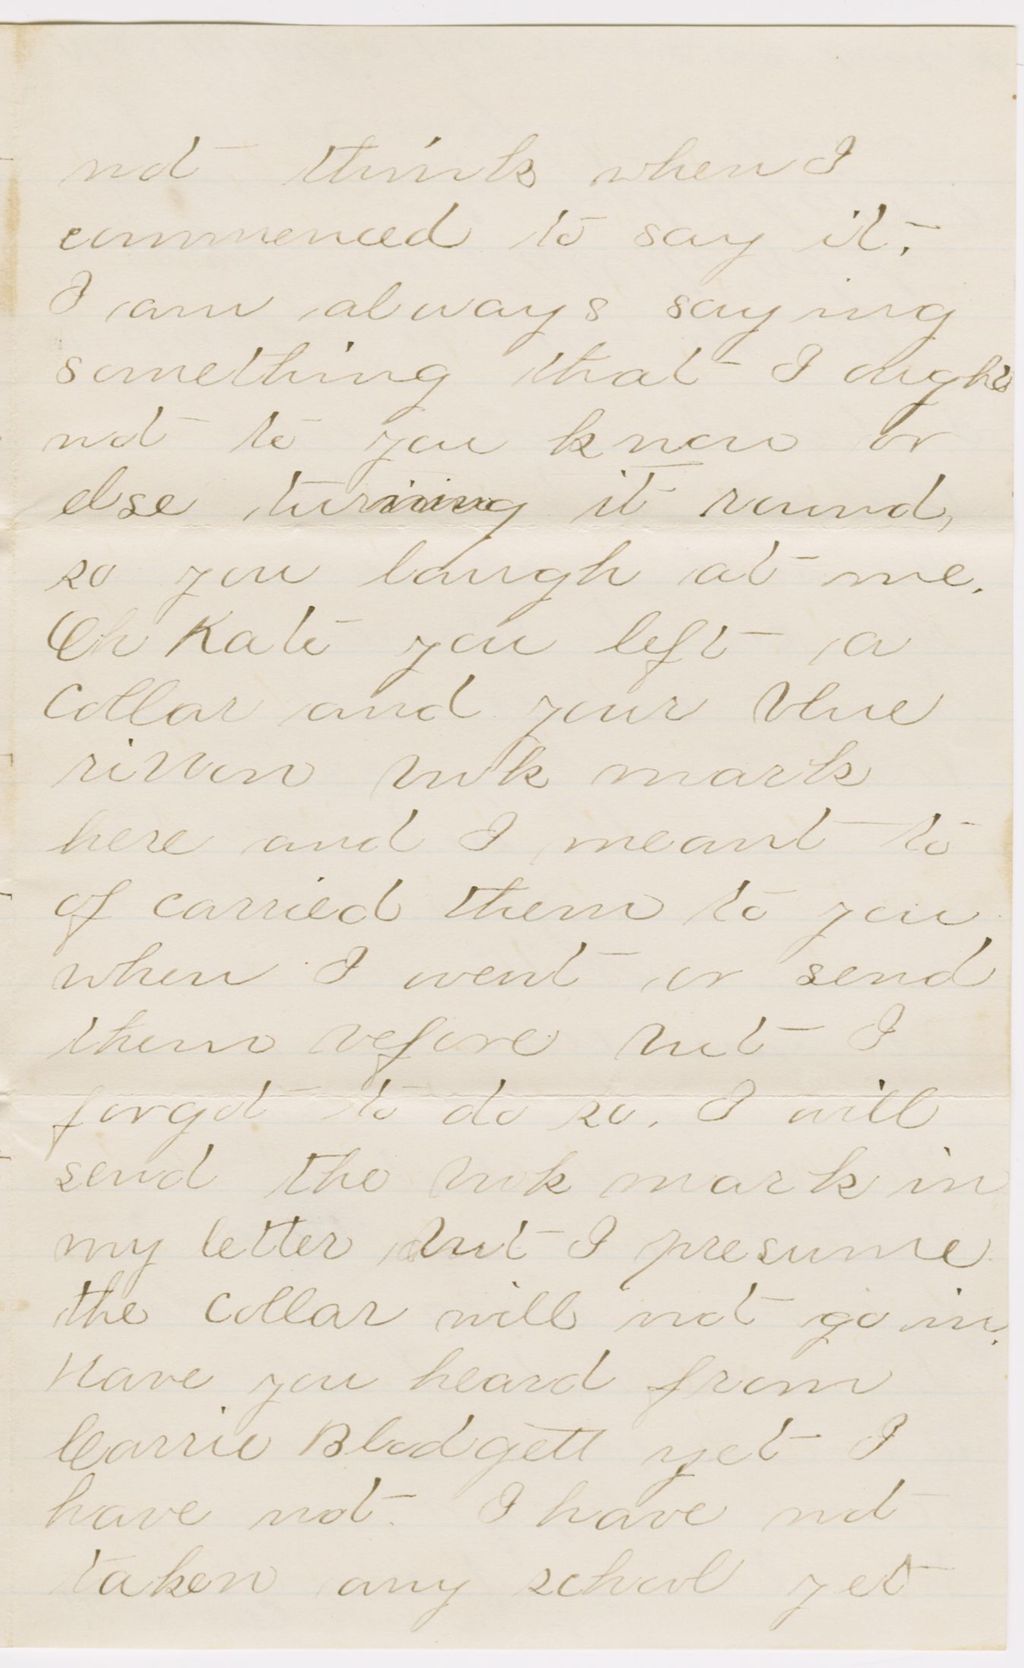 not think when I
commenced to say it.
I am always saying
something that I ought
not to you know or
else turning it round,
so you laugh at me.
Oh Kate you left a
collar and your blue
ribbon book mark
here and I meant to
of carried them to you
when I went or send
them before but I
forgot to do so. I will
send the book mark in
my letter but I presume
the collar will not go in.
Have you heard from
Carrie Blodgett yet I
have not. I have not
taken any school yet